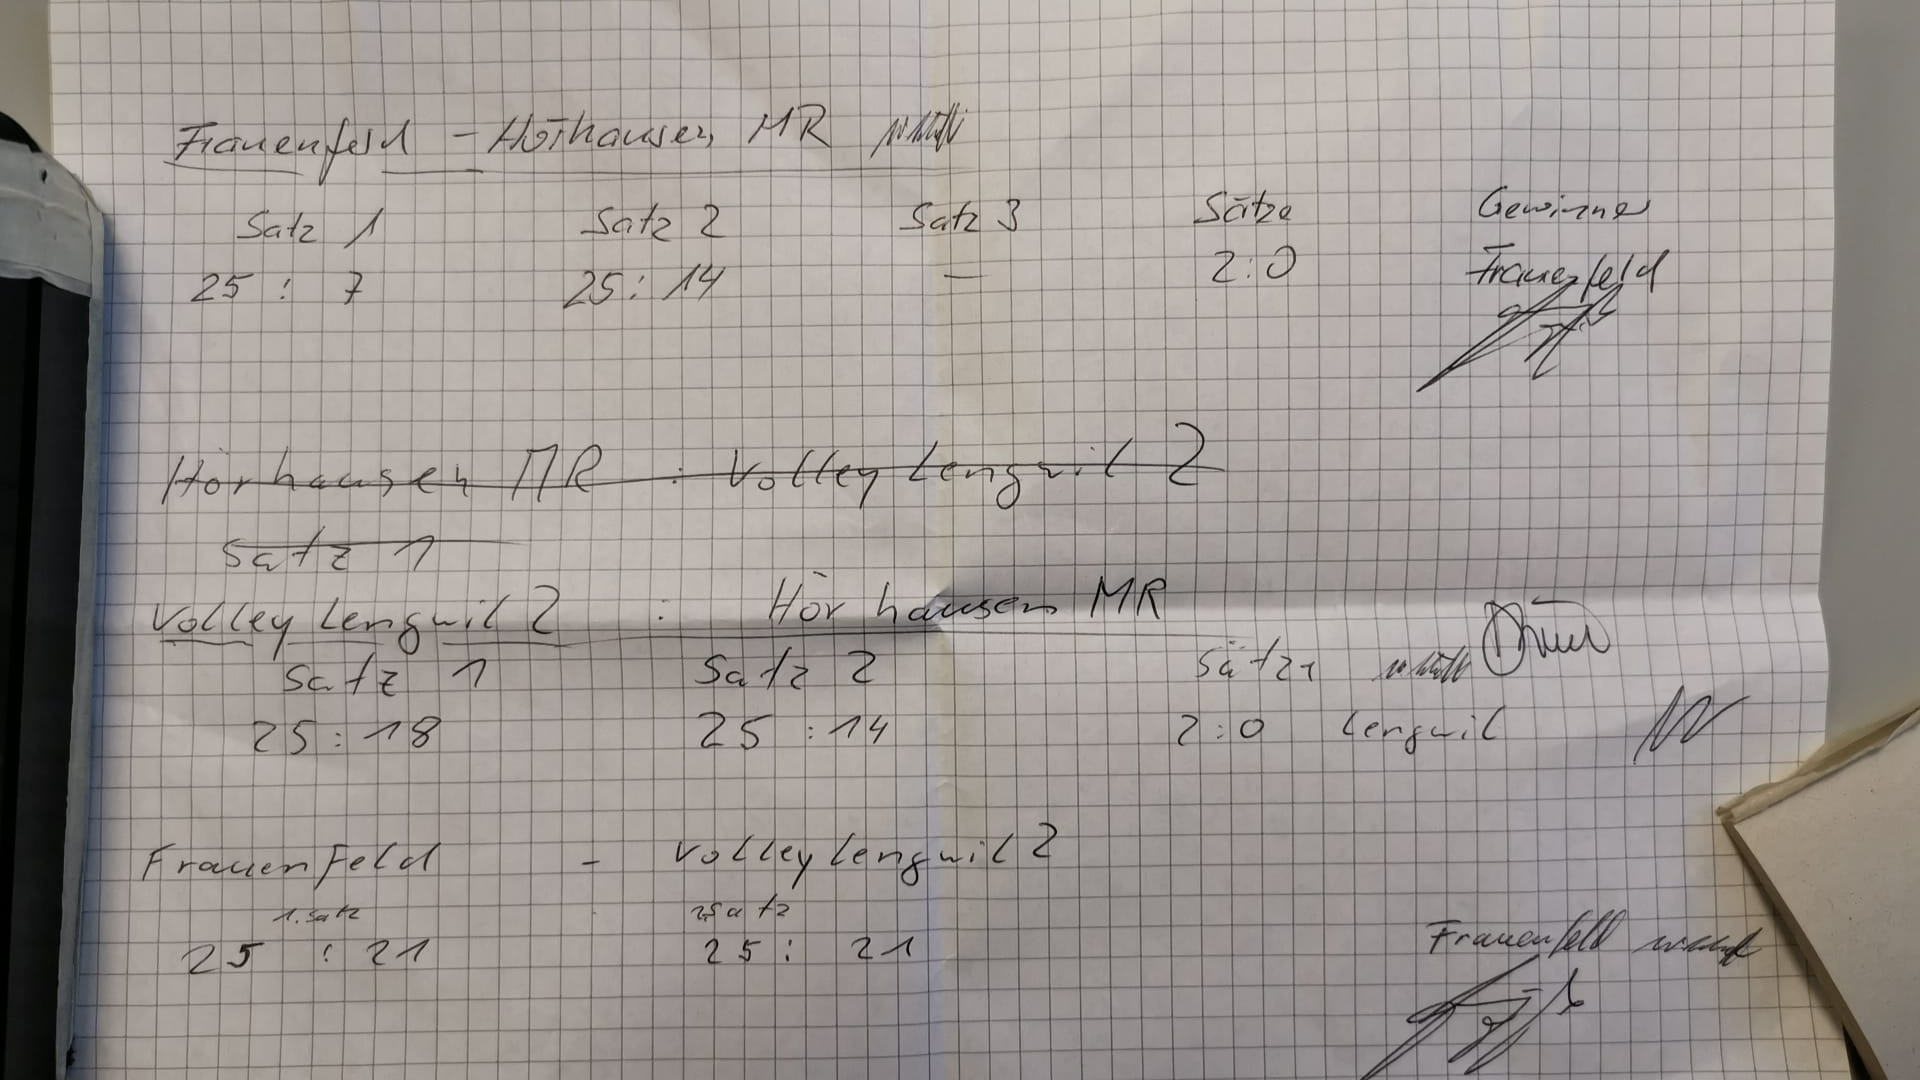 Frauenfeld - Hörhausen MR
Satz 1 Satz 2 Satz 3 Sätze Gewinner
25 : 7 25 : 14 — 2:0 Frauenfeld
Hörhausen MR : Volley Lengwil 2
Satz 1
Volley Lengwil 2 : Hörhausen MR
Satz 1 Satz 2 Sätze
25 : 18 25 : 14 2:0 Lengwil
Frauenfeld - Volley Lengwil 2
1. Satz 2 Satz
25 : 21 25 : 21 Frauenfeld